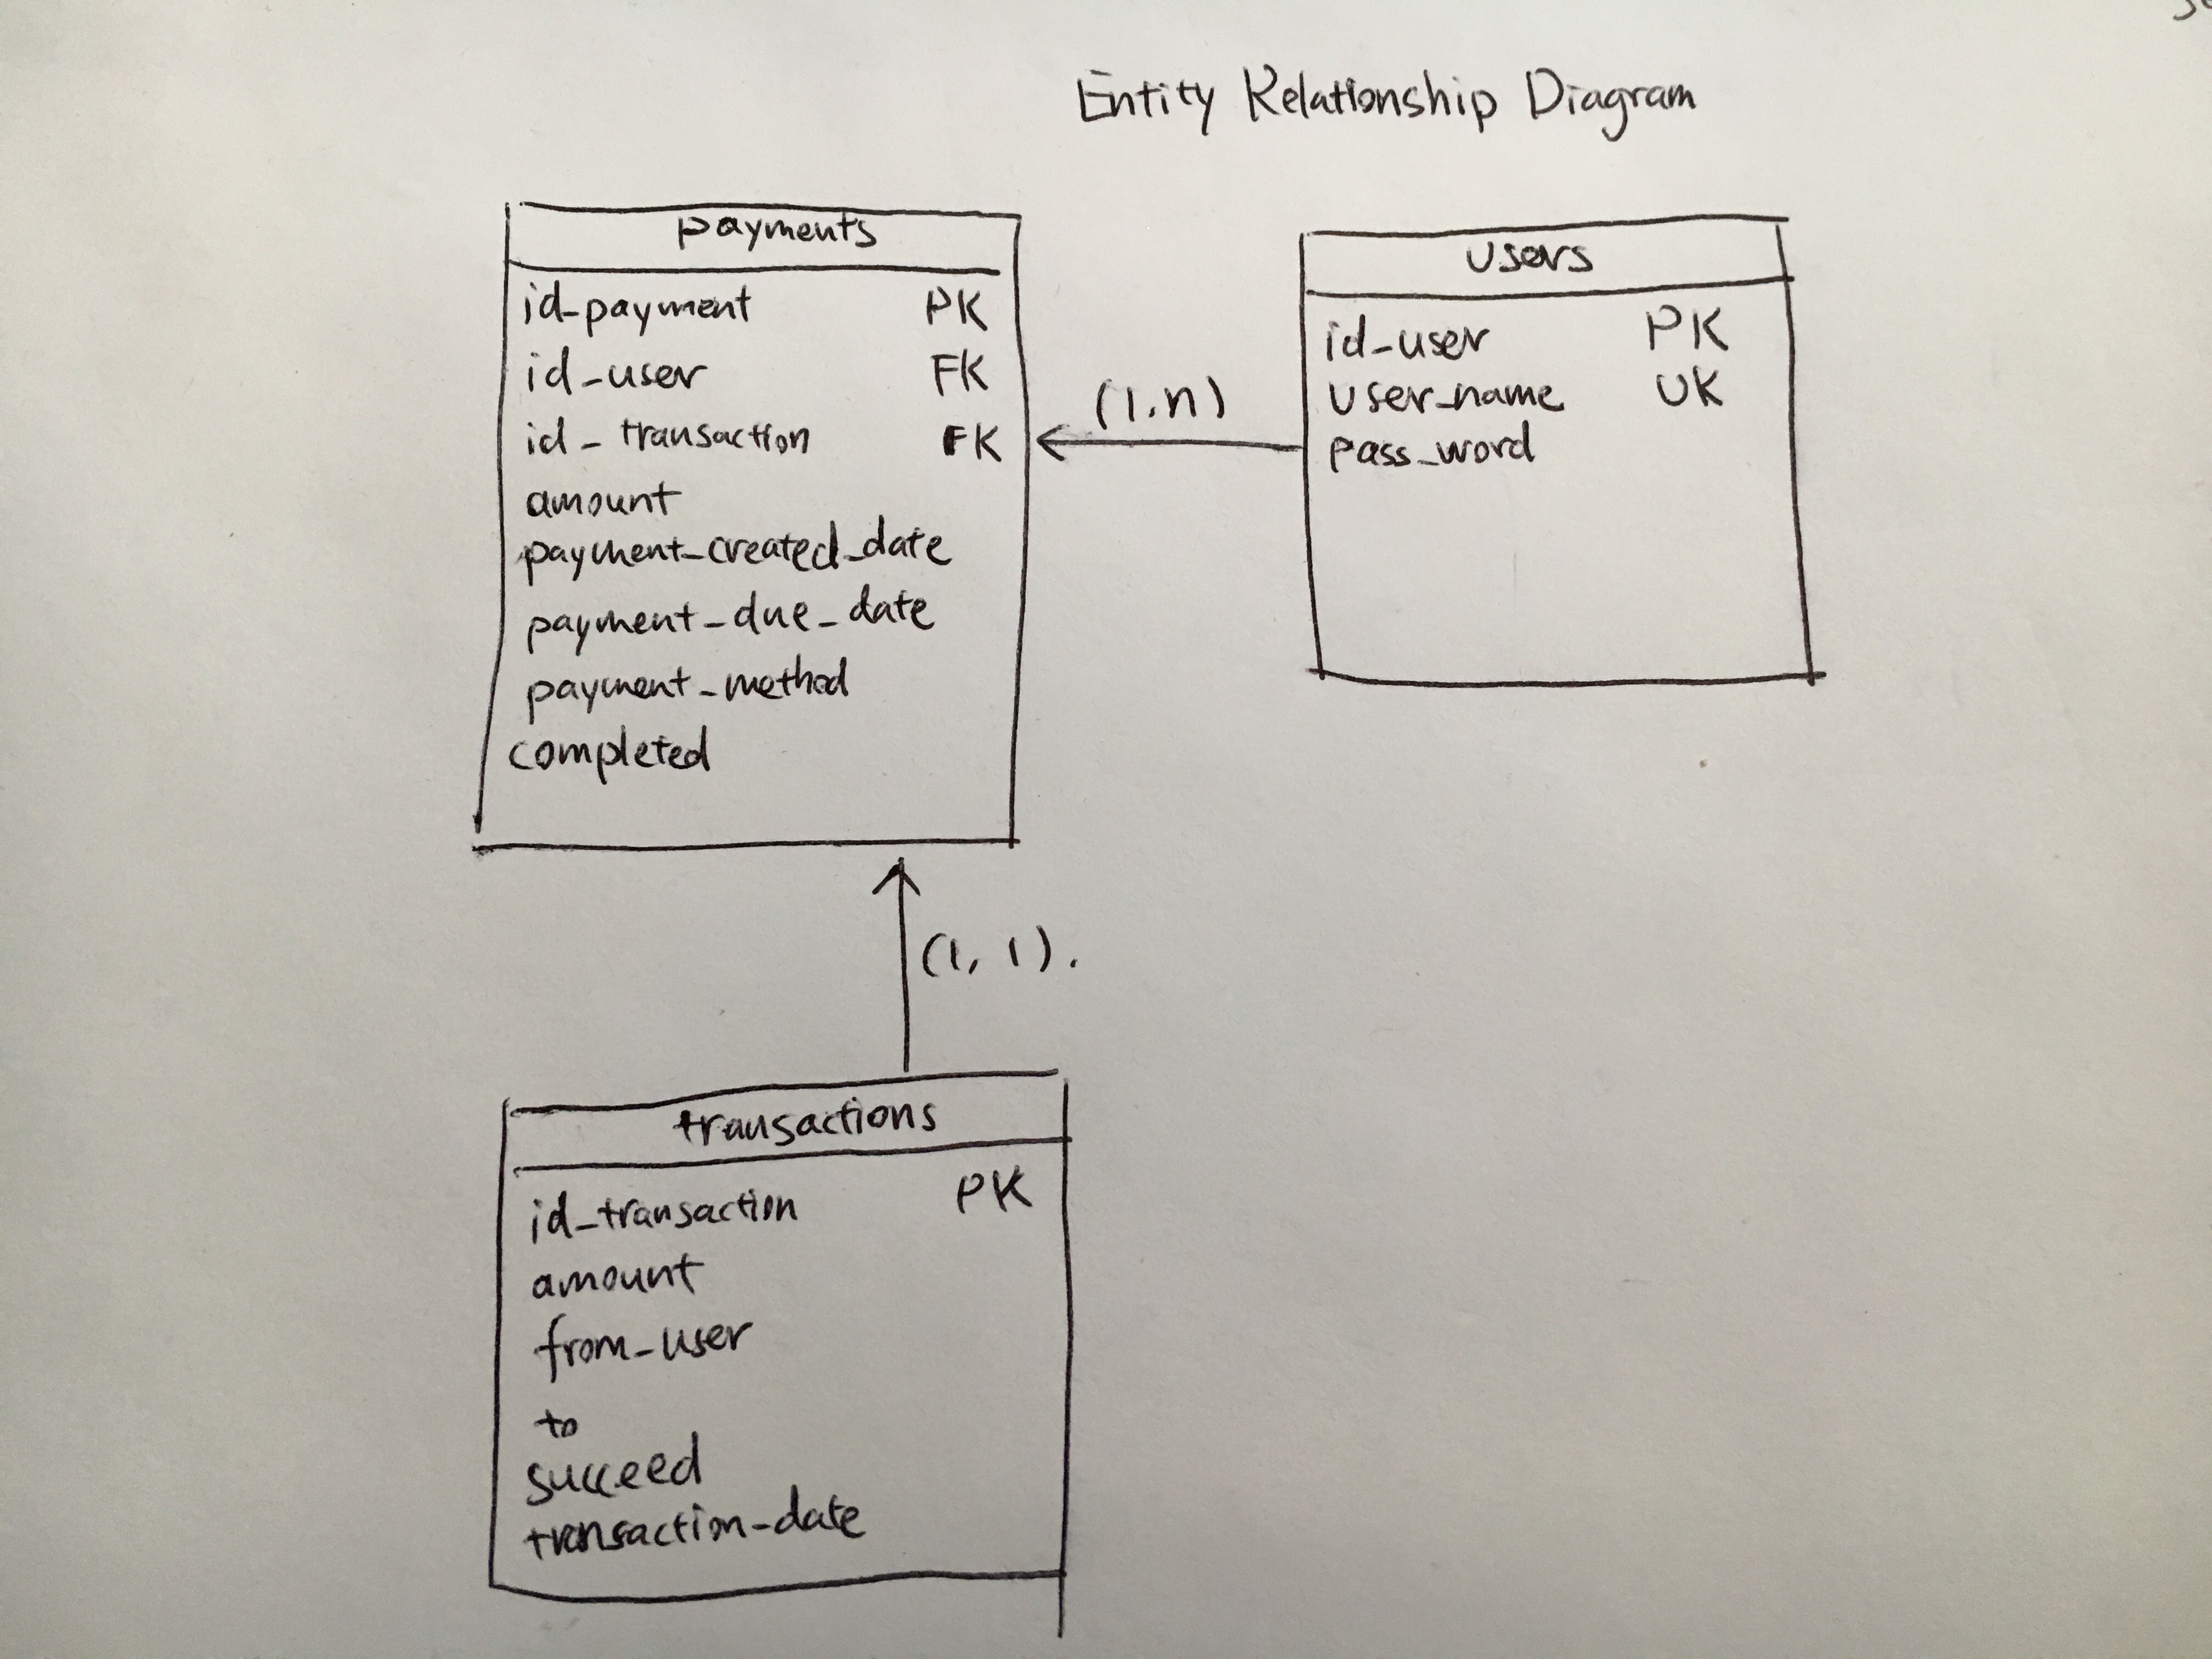 Entity Relationship Diagram
payments
id_payment PK
id_user FK
id_transaction FK
amount
payment_created_date
payment_due_date
payment_method
completed
(1,n)
users
id_user PK
user_name UK
pass_word
(1, 1).
transactions
id_transaction PK
amount
from_user
to
succeed
transaction_date